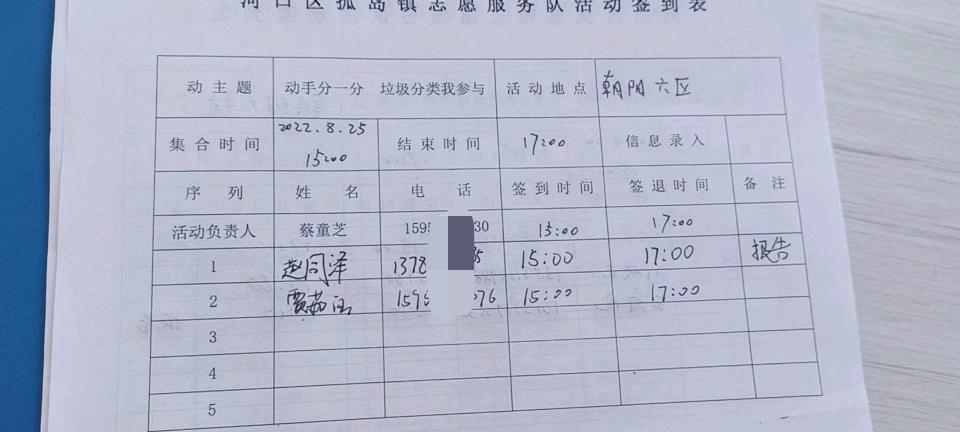 河口区孤岛镇志愿服务队活动签到表
动 主 题 动手分一分 垃圾分类我参与 活 动 地 点 朝阳六区
集 合 时 间 2022.8.25 15:00 结 束 时 间 17:00 信 息 录 入
序 列 姓 名 电 话 签 到 时 间 签 退 时 间 备 注
活动负责人 蔡童芝 159 30 15:00 17:00
1 赵同泽 1378 85 15:00 17:00 报告
2 贾茹 159 076 15:00 17:00
3
4
5